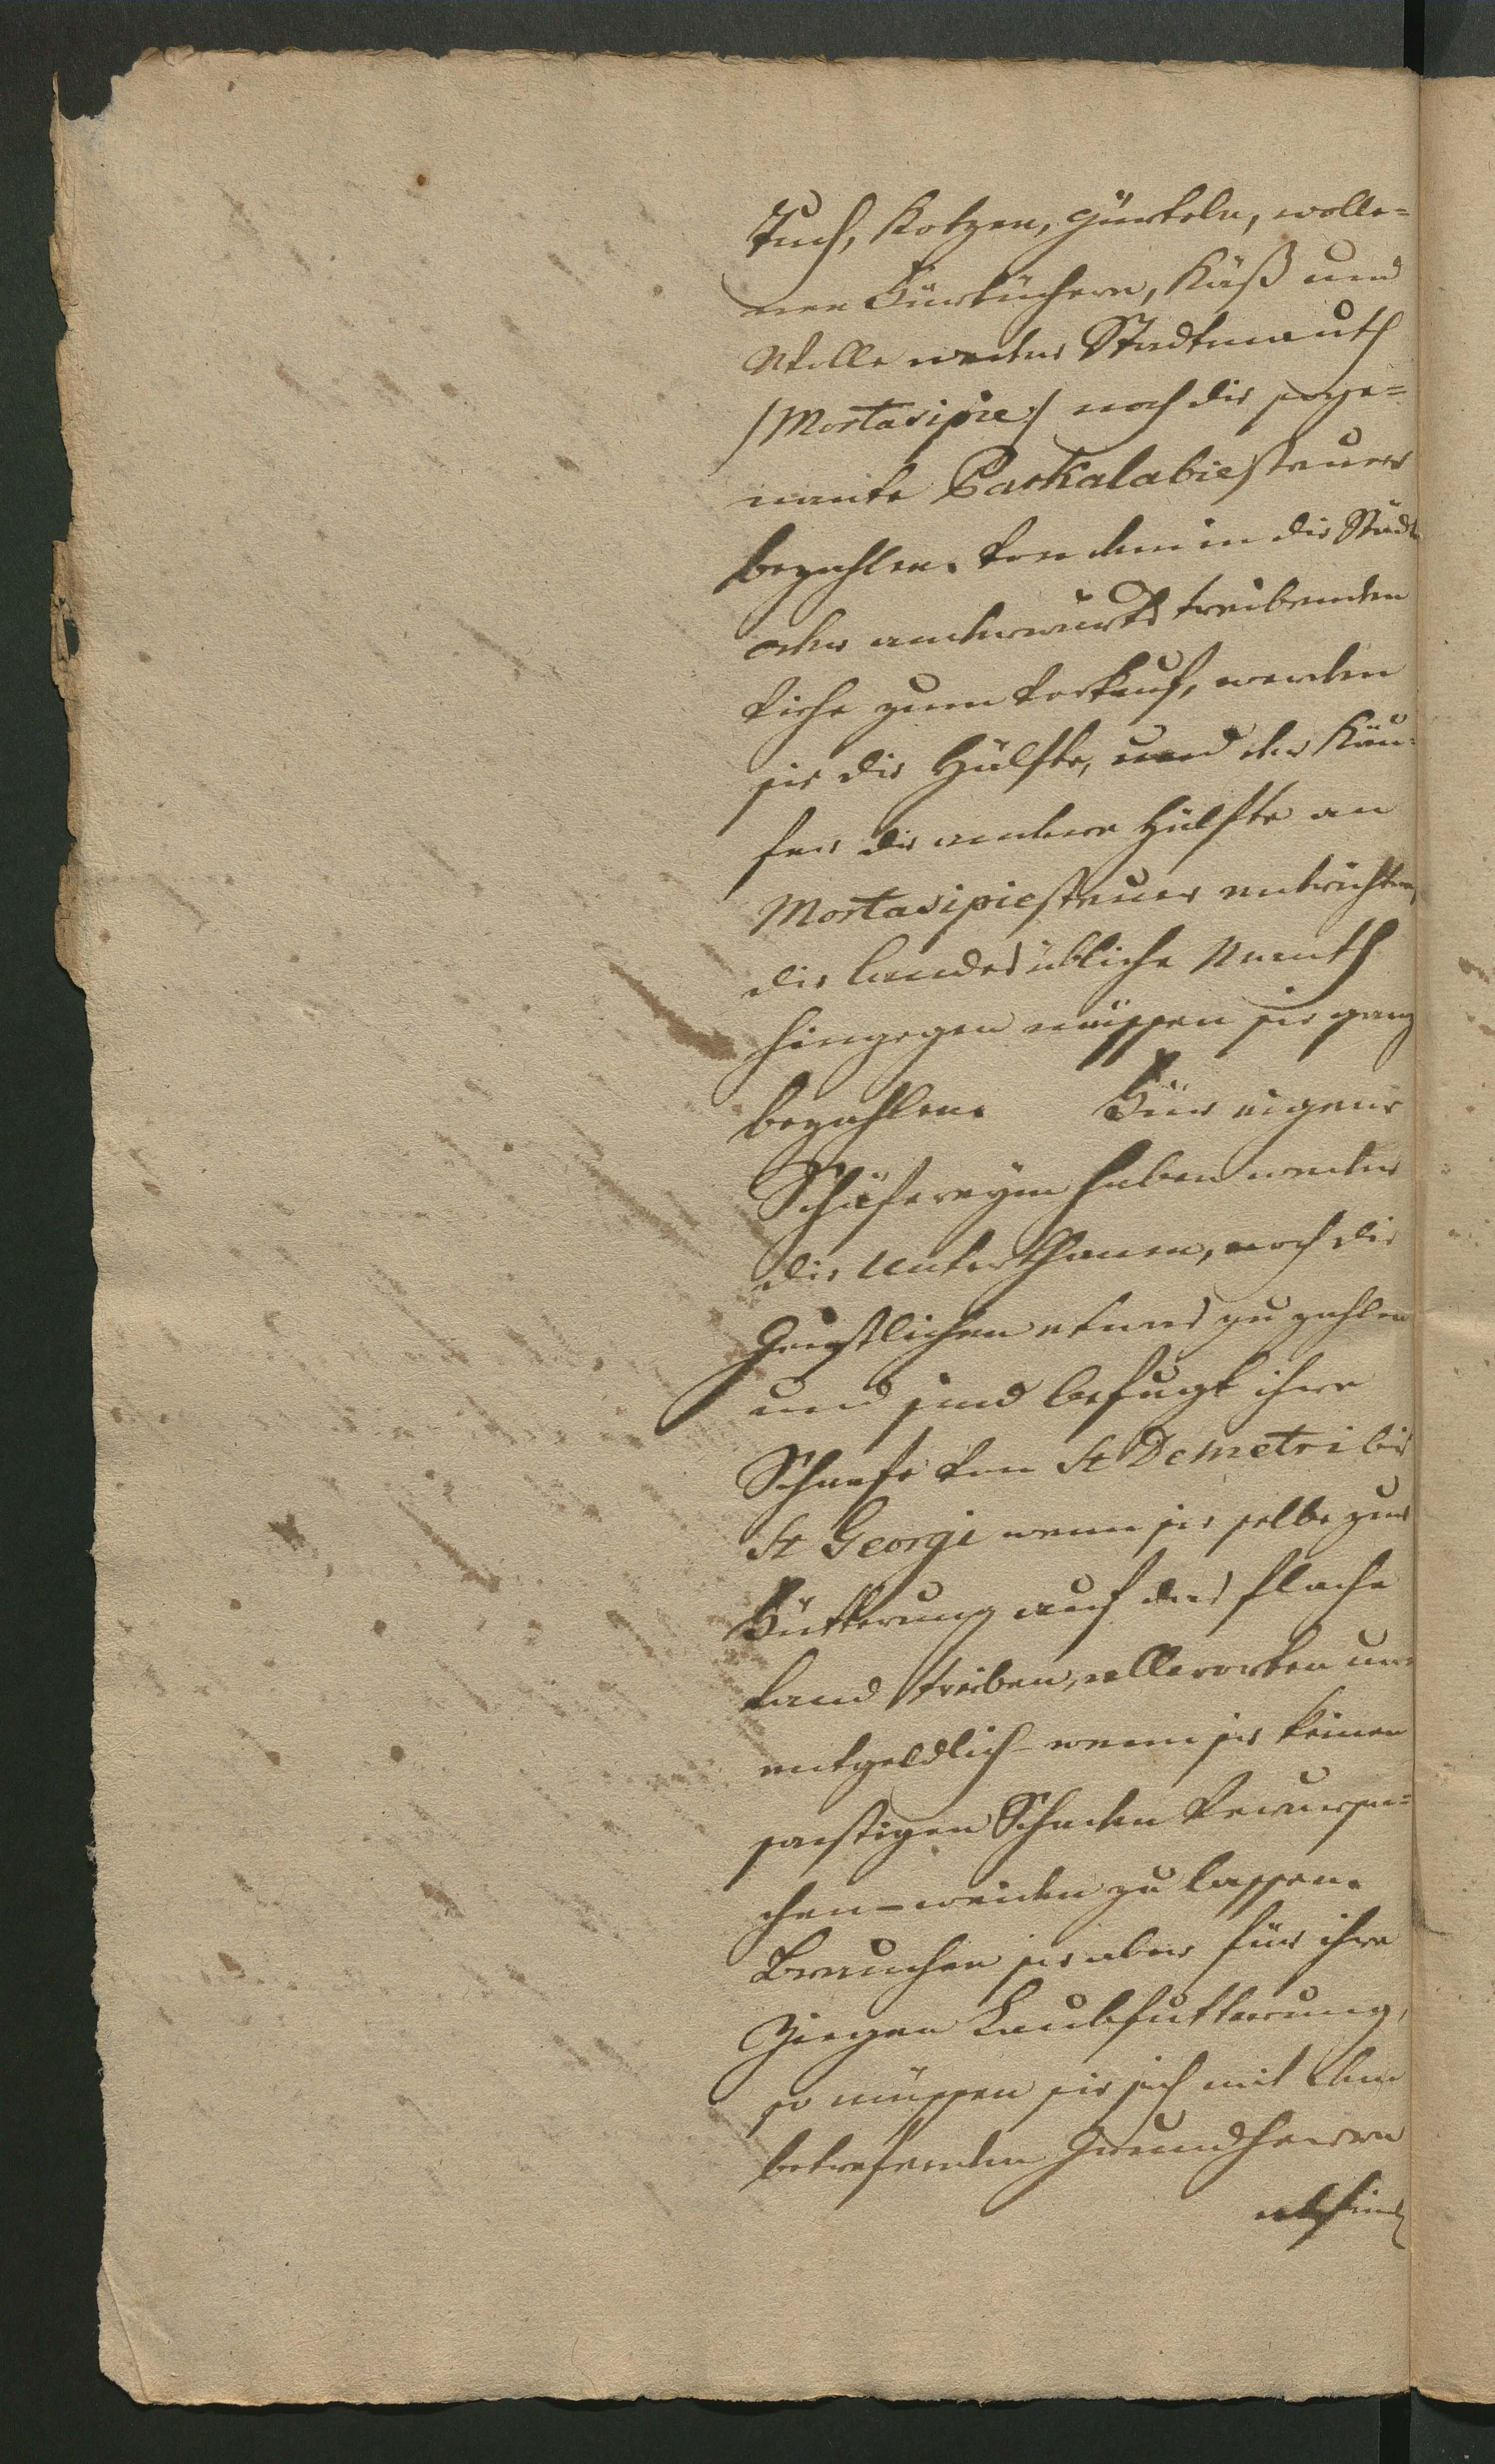 Tuch, Kotzen, Gürteln, wolle=
nen Fürtüchern, Käß und
Wolle weder Stadtmauth
/Mortasipie:/ noch die soge=
nante Parkalabiesteuer
bezahlen. Von dem in die Städte
oder anderwärts treibenden
Viehe zum Verkauf, werden
sie die Hälfte, und der Käu=
fer die andere Hälfte an
Mortasipiesteuer entrichten,
die landesübliche Mauth
hingegen müssen sie ganz
bezahlen. Für eigene
Schäfereyen haben weder
die Unterthanen, noch die
Geistlichen etwas zu zahlen
und sind befugt ihre
Schaafe von St Demetri bis
St Georgi wenn sie selbe zur
Fütterung auf das flache
Land treiben, allerorten un=
entgeldlich – wenn sie keinen
sonstigen Schaden verursa=
chen – weiden zu lassen.
Brauchen sie aber für ihre
Ziegen Laubfutterung,
so müssen sie sich mit dem
betrefenden Grundherrn
abfind